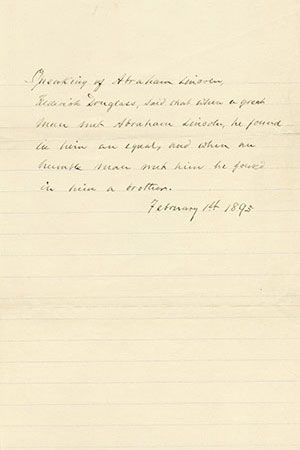 Speaking of Abraham Lincoln,
Frederick Douglass, said that when a great
man met Abraham Lincoln, he found
in him an equal, and when an
humble man met him he found
in him a brother.
February 1st 1895